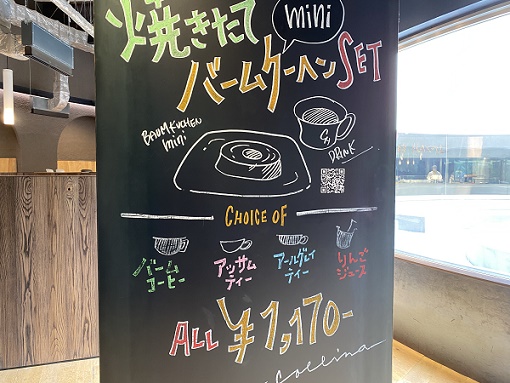 焼きたて
mini
バームクーヘンSET
BAUMKUCHEN
mini
DRINK
CHOICE OF
バーム
コーヒー
アッサム
ティー
アールグレイ
ティー
りんご
ジュース
ALL ¥1,170-
Collina